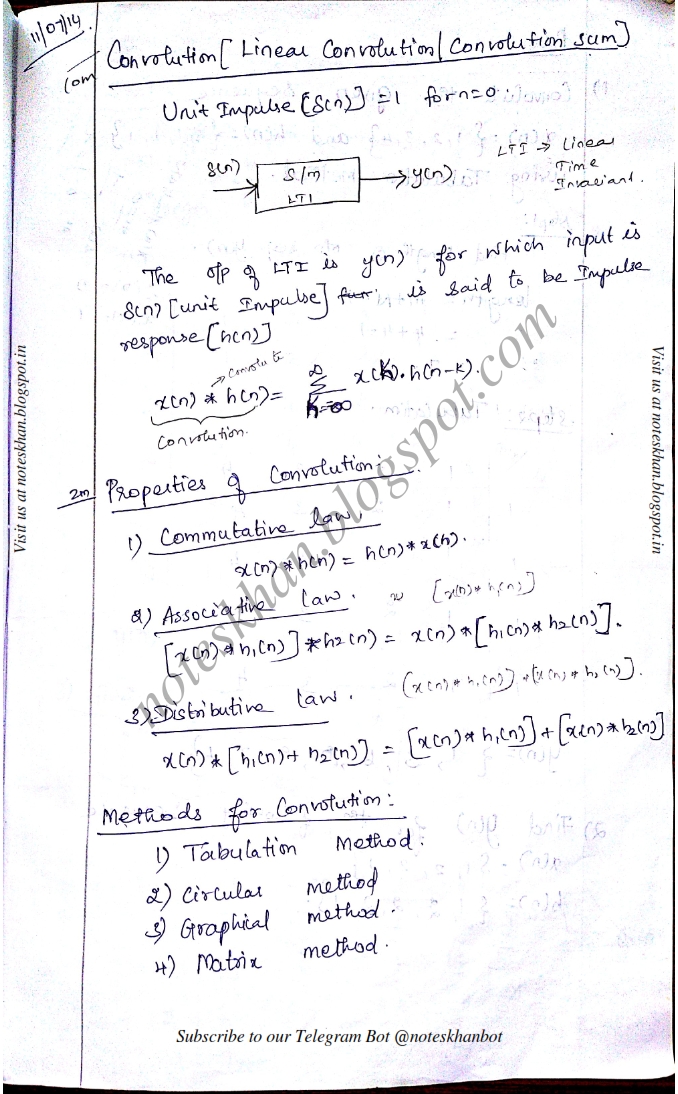 11/07/14.
10m
Convolution [ Linear Convolution | Convolution sum]
Unit Impulse [δ(n)] = 1 for n=0.
δ(n)
S/m
LTI
y(n)
LTI → Linear
Time
Invariant.
The o/p of LTI is y(n) for which input is
δ(n) [unit Impulse] is said to be Impulse
response [h(n)]
x(n) * h(n) = ∞ Σ K=-∞ x(k). h(n-k).
Convolution.
2m
Properties of Convolution:
1) Commutative law.
x(n) * h(n) = h(n) * x(n).
2) Associative law.
[x(n) * h1(n)] * h2(n) = x(n) * [h1(n) * h2(n)].
3) Distributive law.
(x(n) * h1(n)) + [x(n) * h2(n)].
x(n) * [h1(n) + h2(n)] = [x(n) * h1(n)] + [x(n) * h2(n)]
Methods for Convolution:
1) Tabulation Method.
2) Circular method
3) Graphical method.
4) Matrix method.
Visit us at noteskhan.blogspot.in
Visit us at noteskhan.blogspot.in
noteskhan.blogspot.com
Subscribe to our Telegram Bot @noteskhanbot